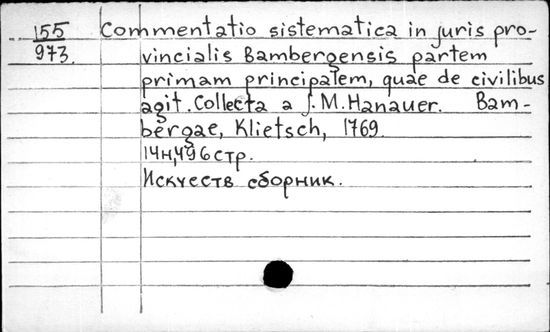 155 Commentatio sistematica in juris pro-
973. vincialis Bambergensis partem
primam principalem, quae de civilibus
agit. Collecta a J. M. Hanauer. Bam-
bergae, Klietsch, 1769.
14н, 496 стр.
Искусств сборник.